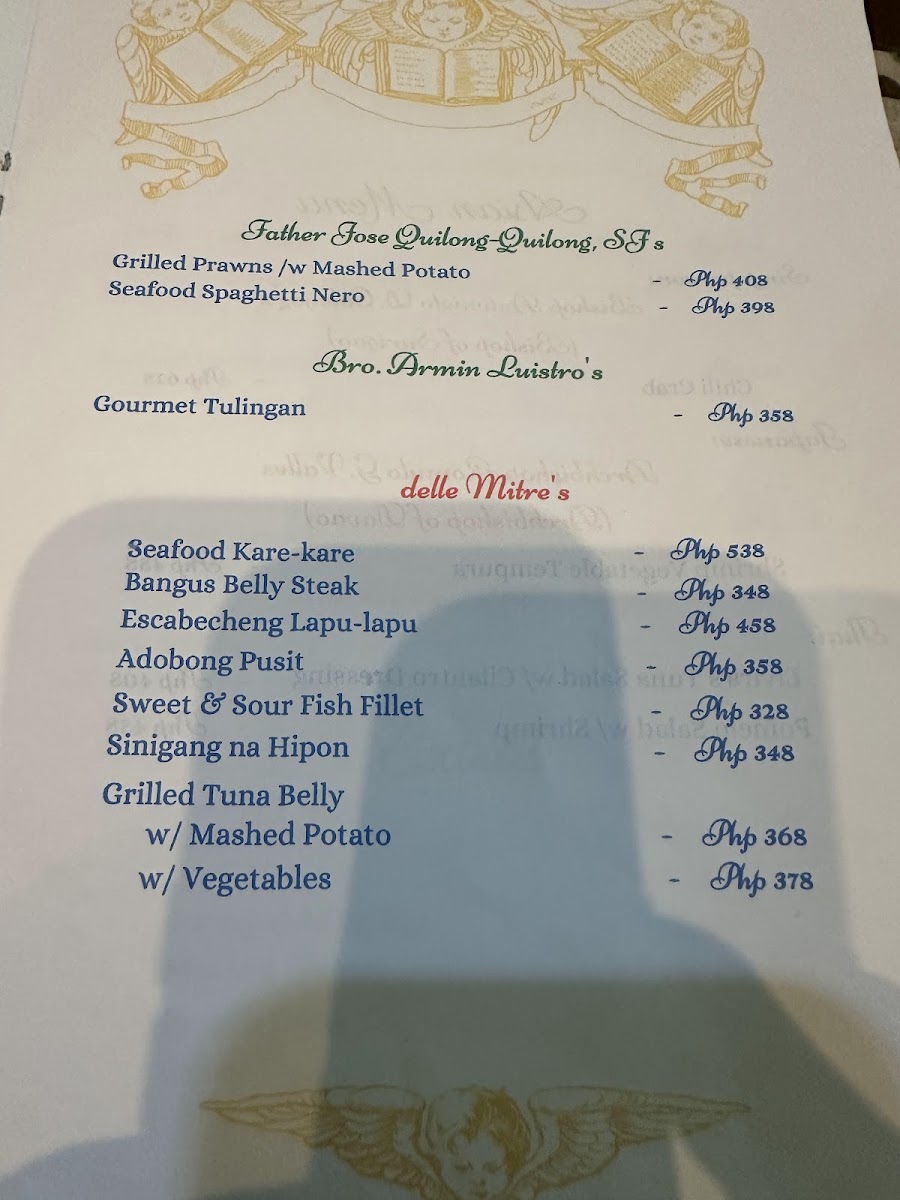 Father Jose Quilong-Quilong, SJ's
Grilled Prawns /w Mashed Potato - Php 408
Seafood Spaghetti Nero - Php 398
Bro. Armin Luistro's
Gourmet Tulingan - Php 358
delle Mitre's
Seafood Kare-kare - Php 538
Bangus Belly Steak - Php 348
Escabecheng Lapu-lapu - Php 458
Adobong Pusit - Php 358
Sweet & Sour Fish Fillet - Php 328
Sinigang na Hipon - Php 348
Grilled Tuna Belly
w/ Mashed Potato - Php 368
w/ Vegetables - Php 378